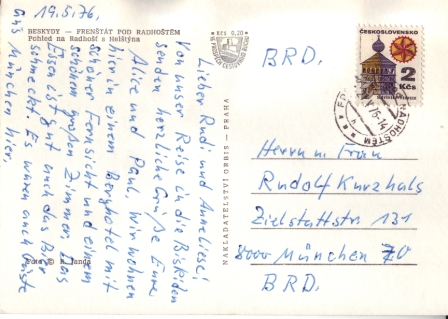 19.5.76,
BESKYDY — FRENŠTÁT POD RADHOŠTĚM
Pohled na Radhošť s Helštýna
Lieber Rudi und Anneliese!
Von unser Reise in die Biskiden
senden herzliche Grüße Eure
Alice und Paul, wir wohnen
hier in einem Berghotel mit
schöner Fernsicht und einem
schönen großen Zimmer. Das
Essen ist gut und das Bier
schmeckt. Es waren auch Gäste
aus München hier.
Foto © B. Janda
NAKLADATELSTVÍ ORBIS — PRAHA
Kčs 0,20
BRD.
ČESKOSLOVENSKO
2
Kčs
RADHOŠTĚM
Herrn u. Frau
Rudolf Kurzhals
Zielstattstr. 131
8000 München 70
BRD.